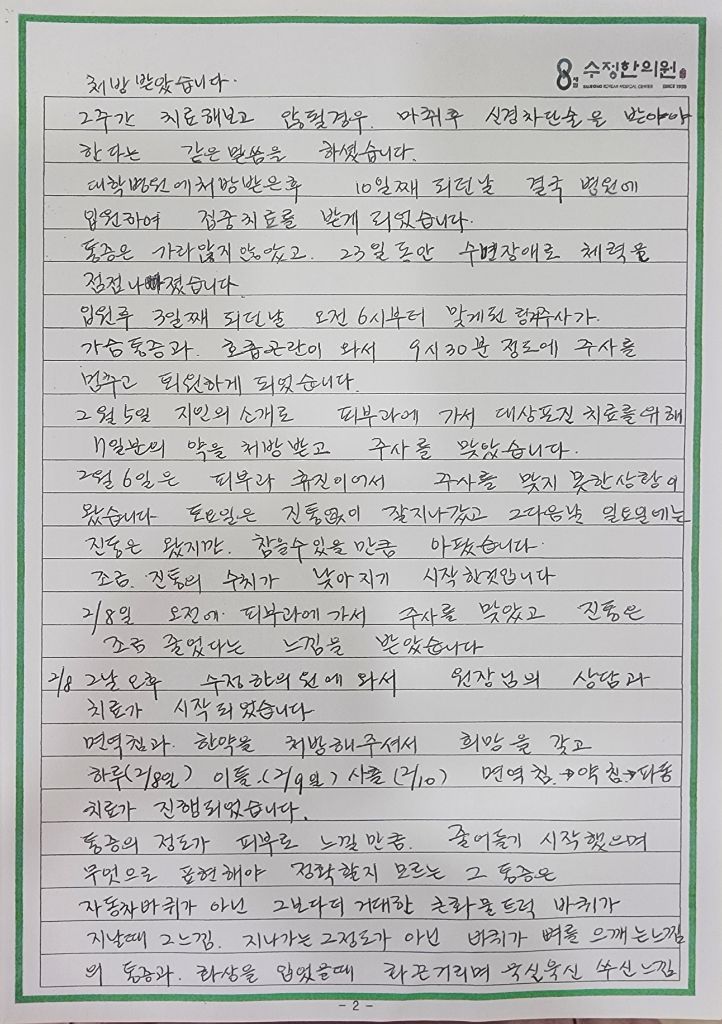 수정한의원
SUJEONG KOREAN MEDICAL CENTER SINCE 1999
처방 받았습니다.
2주간 치료해보고 않될경우. 마취후 신경차단술을 받아야
한다는 같은 말씀을 하셨습니다.
대학병원에 처방받은후 10일째 되던날 결국 병원에
입원하여 집중치료를 받게 되었습니다.
통증은 가라앉지 않았고. 23일동안 수면장애로 체력을
점점 나빠졌습니다
입원후 3일째 되던날 오전 6시부터 맞게된 주사가.
가슴통증과. 호흡곤란이 와서 9시 30분 정도에 주사를
멈추고 퇴원하게 되었습니다.
2월 5일 지인의 소개로 피부과에 가서 대상포진 치료를 위해
일분의 약을 처방받고 주사를 맞았습니다.
2월 6일은 피부과 휴진이어서 주사를 맞지 못한상황이
왔습니다 토요일은 진통없이 잘지나갔고 그다음날 일요일에는
진통은 왔지만. 참을수있을만큼 아팠습니다.
조금. 진통의 수치가 낮아지기 시작한것입니다
2/8일 오전에. 피부과에 가서 주사를 맞았고 진통은
조금 줄었다는 느낌을 받았습니다
2/8 그날 오후 수정한의원에 와서 원장님의 상담과
치료가 시작되었습니다
면역침과. 한약을 처방해주셔서 희망을 갖고
하루(2/8일) 이틀.(2/9일) 사흘(2/10) 면역침.→약침→파동
치료가 진행되었습니다.
통증의 정도가 피부로 느낄만큼. 줄어들기 시작했으며
무엇으로 표현해야 정확할지 모르는 그 통증은
자동차바퀴가 아닌 그보다더 거대한 큰화물트럭 바퀴가
지날때 그느낌. 지나가는 그정도가 아닌 바퀴가 뼈를 으깨는느낌
의 통증과. 화상을 입었을때 화끈거리며 욱실욱신 쑤신느낌
- 2 -